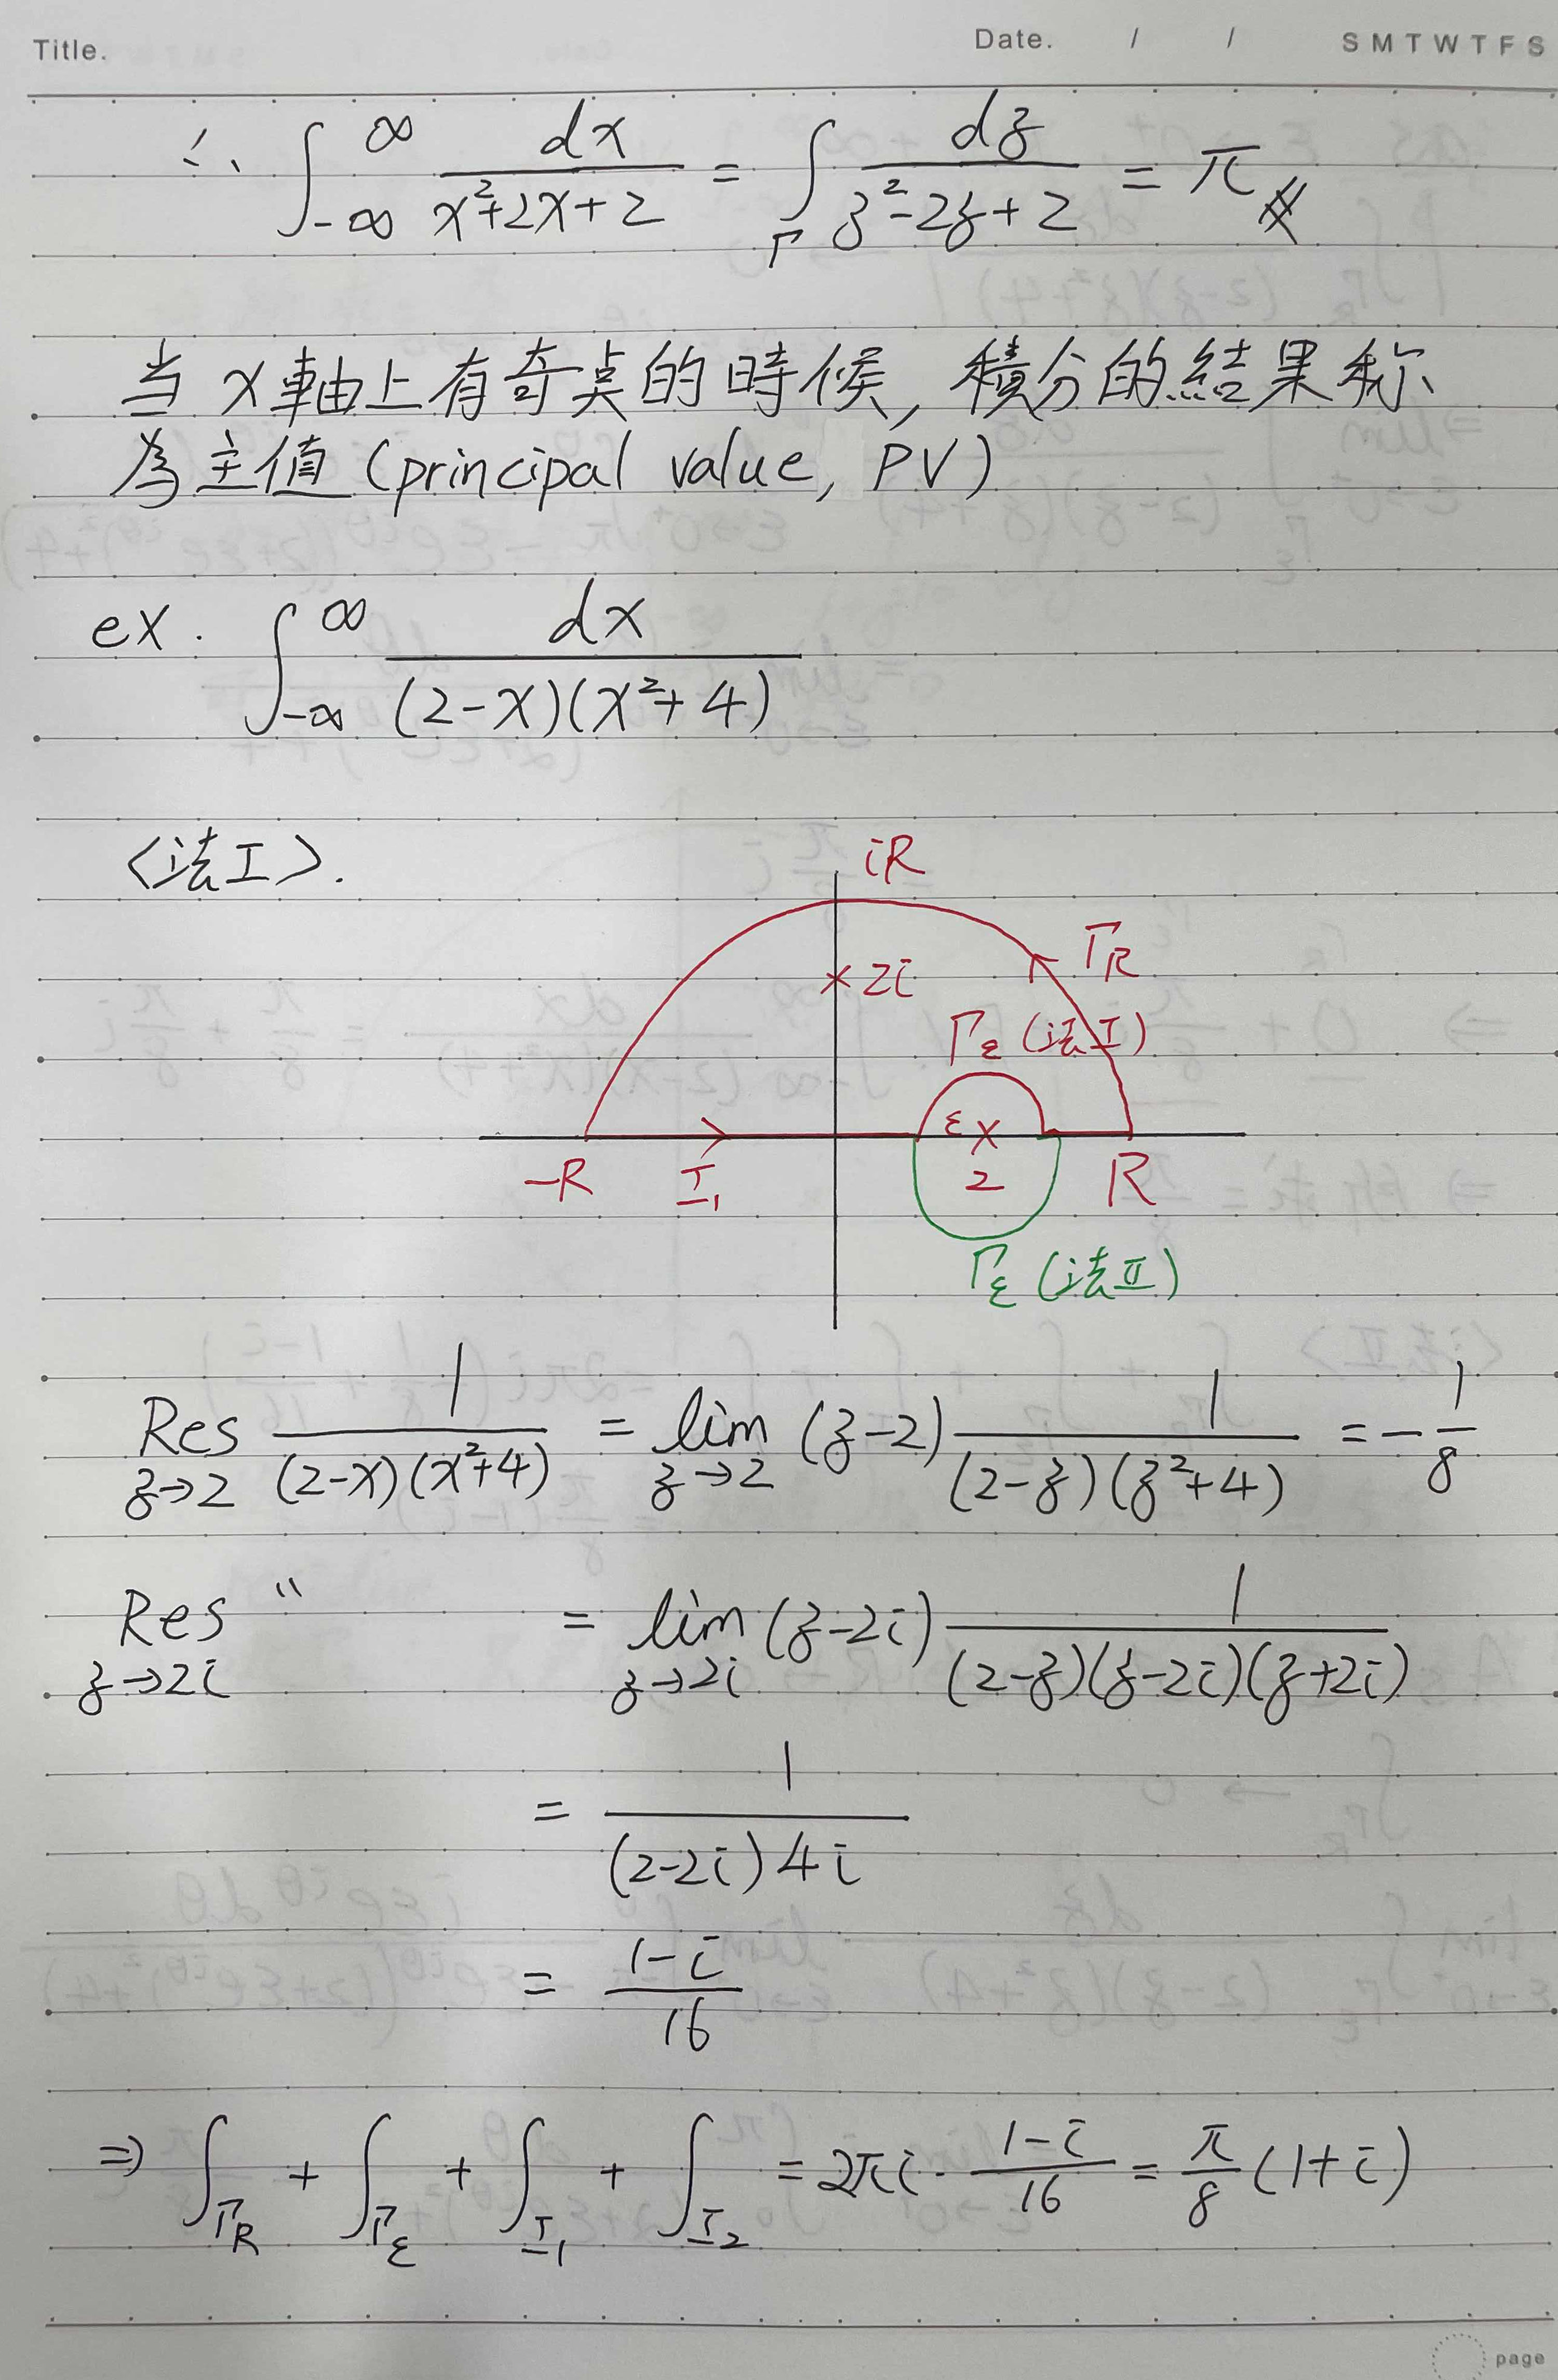 Title. Date. / / S M T W T F S
∴ ∫_{-∞}^{∞} dx/(x²+2x+2) = ∫_Γ dz/(z²-2z+2) = π
当 x軸上有奇奌的時候, 積分的結果称
為主值 (principal value, PV)
ex. ∫_{-∞}^{∞} dx/((2-x)(x²+4))
<法I>.
iR
Γ_R
×2i
Γ_ε (法I)
ε ×
-R I₁ 2 R
Γ_ε (法II)
Res_{z→2} 1/((2-x)(x²+4)) = lim_{z→2} (z-2) 1/((2-z)(z²+4)) = -1/8
Res_{z→2i} " = lim_{z→2i} (z-2i) 1/((2-z)(z-2i)(z+2i))
= 1/((2-2i)4i)
= (1-i)/16
⇒ ∫_{Γ_R} + ∫_{Γ_ε} + ∫_{I₁} + ∫_{I₂} = 2πi · (1-i)/16 = π/8 (1+i)
page